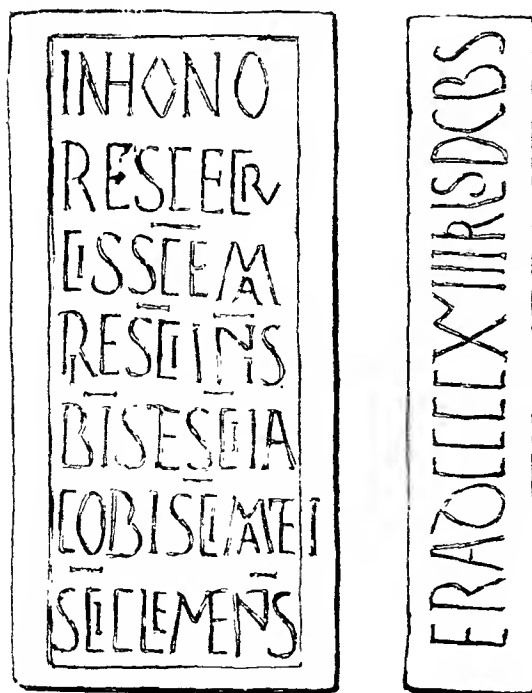 INHONO
RESCECRV
CISSCEMA
RESCIINS
BISESCIA
COBISCIMATEI
SCICLEMENS
ERADCCCCLXVIIIIKLSDCBS